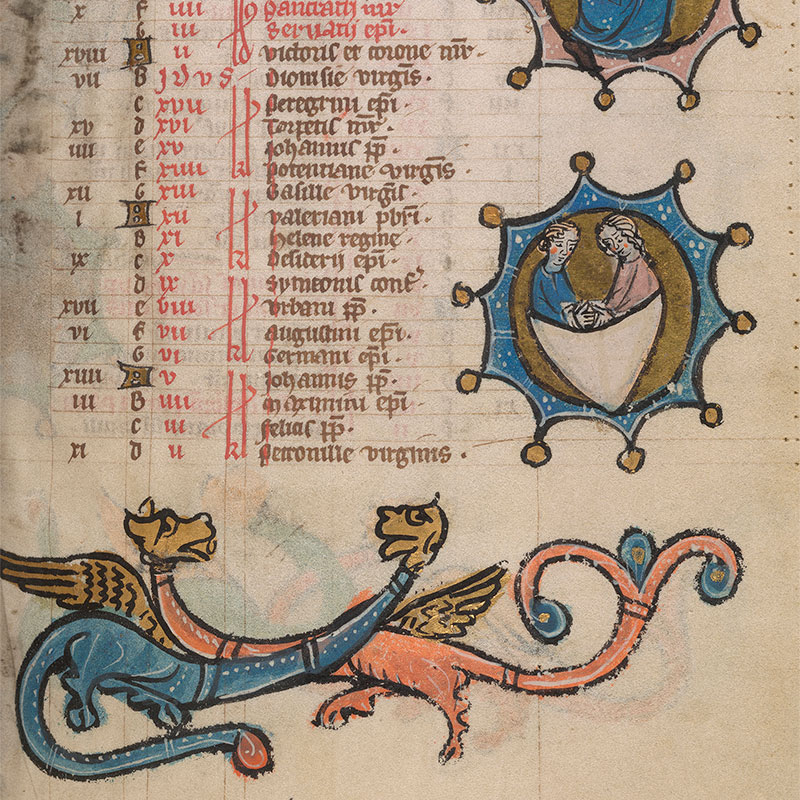 x f iiii pancratii mr̄
G iii Servatii ep̄i.
xviii A ii victoris et corone mr̄.
vii B Idus dionisie virgīs.
c xvii k peregrini ep̄i.
xv d xvi torpetis mr̄.
iiii e xv Johannis pp̄.
f xiiii k potentiane virgīs.
xii G xiii k basille virgīs.
i A xii valeriani pbr̄i.
B xi helene regine.
ix c x k desiderij ep̄i.
d ix k symeonis conf̄
xvii e viii vrbani pp̄.
vi f vii augustini ep̄i.
G vi k Germani ep̄i.
xiiii A v k Johannis pp̄.
iii B iiii maximini ep̄i.
c iii felicis pp̄.
xi d ii k petronille virginis.